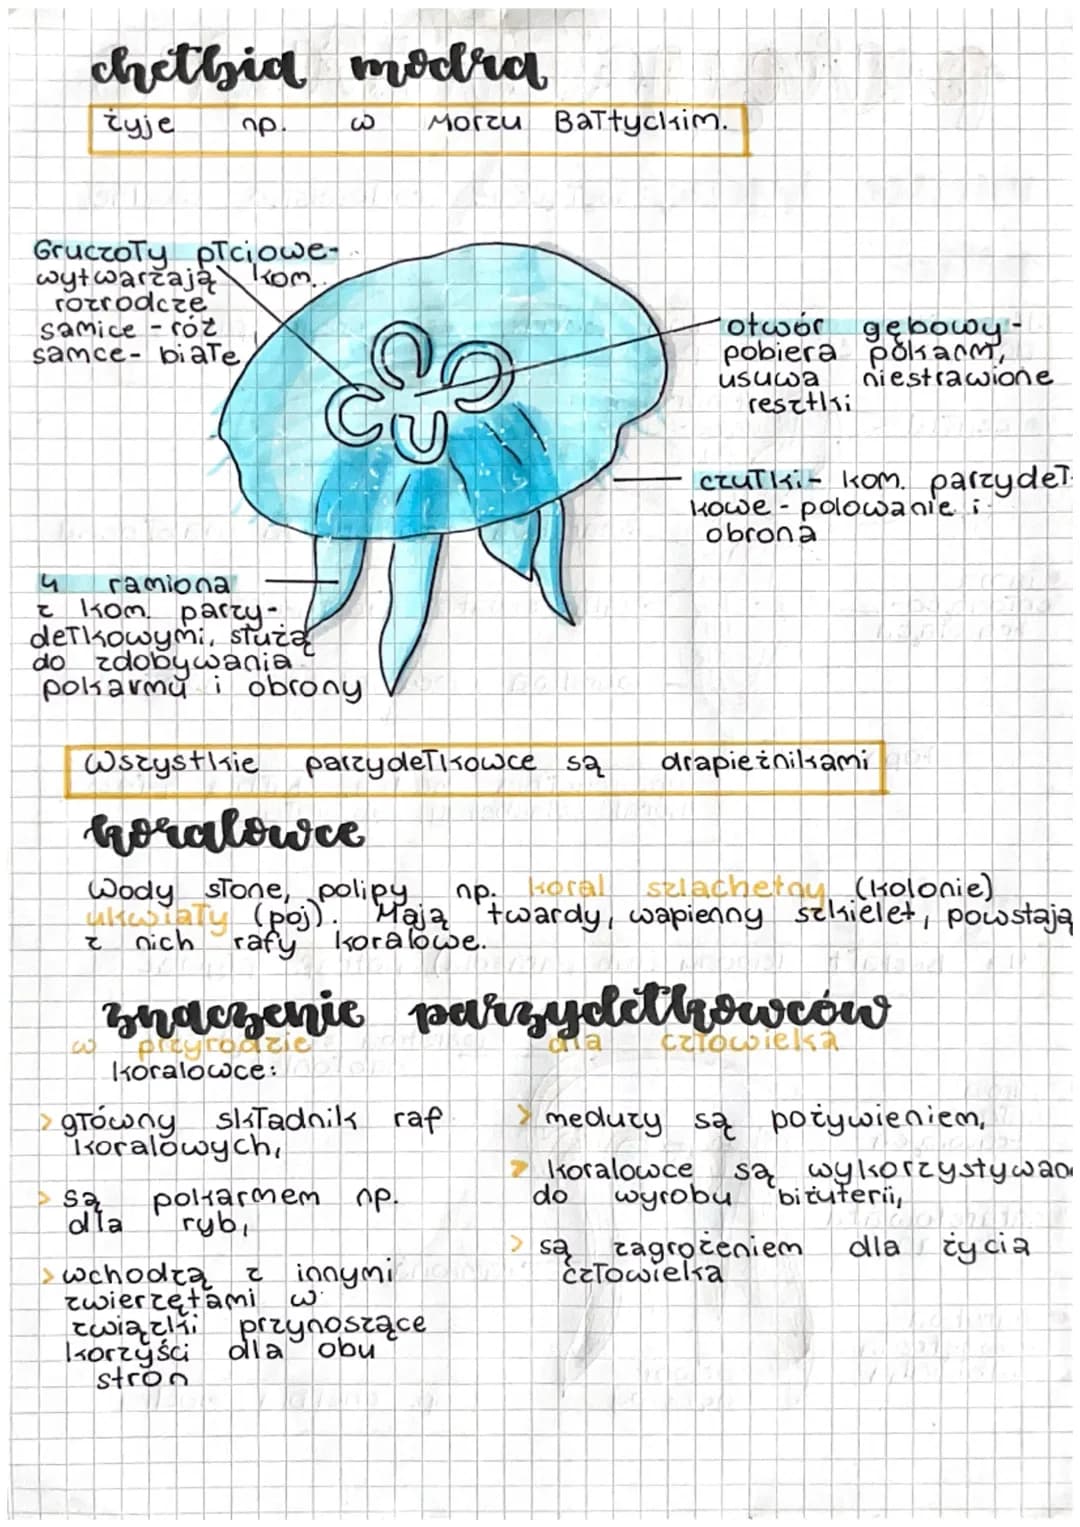 chełbia modra
żyje np. w Morzu Bałtyckim.
Gruczoły płciowe-
wytwarzają kom.
rozrodcze
samice - róż
samce - białe
otwór gębowy -
pobiera pokarm,
usuwa niestrawione
resztki
czułki - kom. parzydeł-
kowe - polowanie i
obrona
4 ramiona
z kom. parzy-
dełkowymi, służą
do zdobywania
pokarmu i obrony
Wszystkie parzydełkowce są drapieżnikami
koralowce
Wody słone, polipy np. koral szlachetny (kolonie)
ukwiały (poj). Mają twardy, wapienny szkielet, powstają
z nich rafy koralowe.
znaczenie parzydełkowców
w przyrodzie
dla człowieka
koralowce:
> główny składnik raf
koralowych,
> są pokarmem np.
dla ryb,
> wchodzą z innymi
zwierzętami w
związki przynoszące
korzyści dla obu
stron
> meduzy są pożywieniem,
> koralowce są wykorzystywan
do wyrobu biżuterii,
> są zagrożeniem dla życia
człowieka